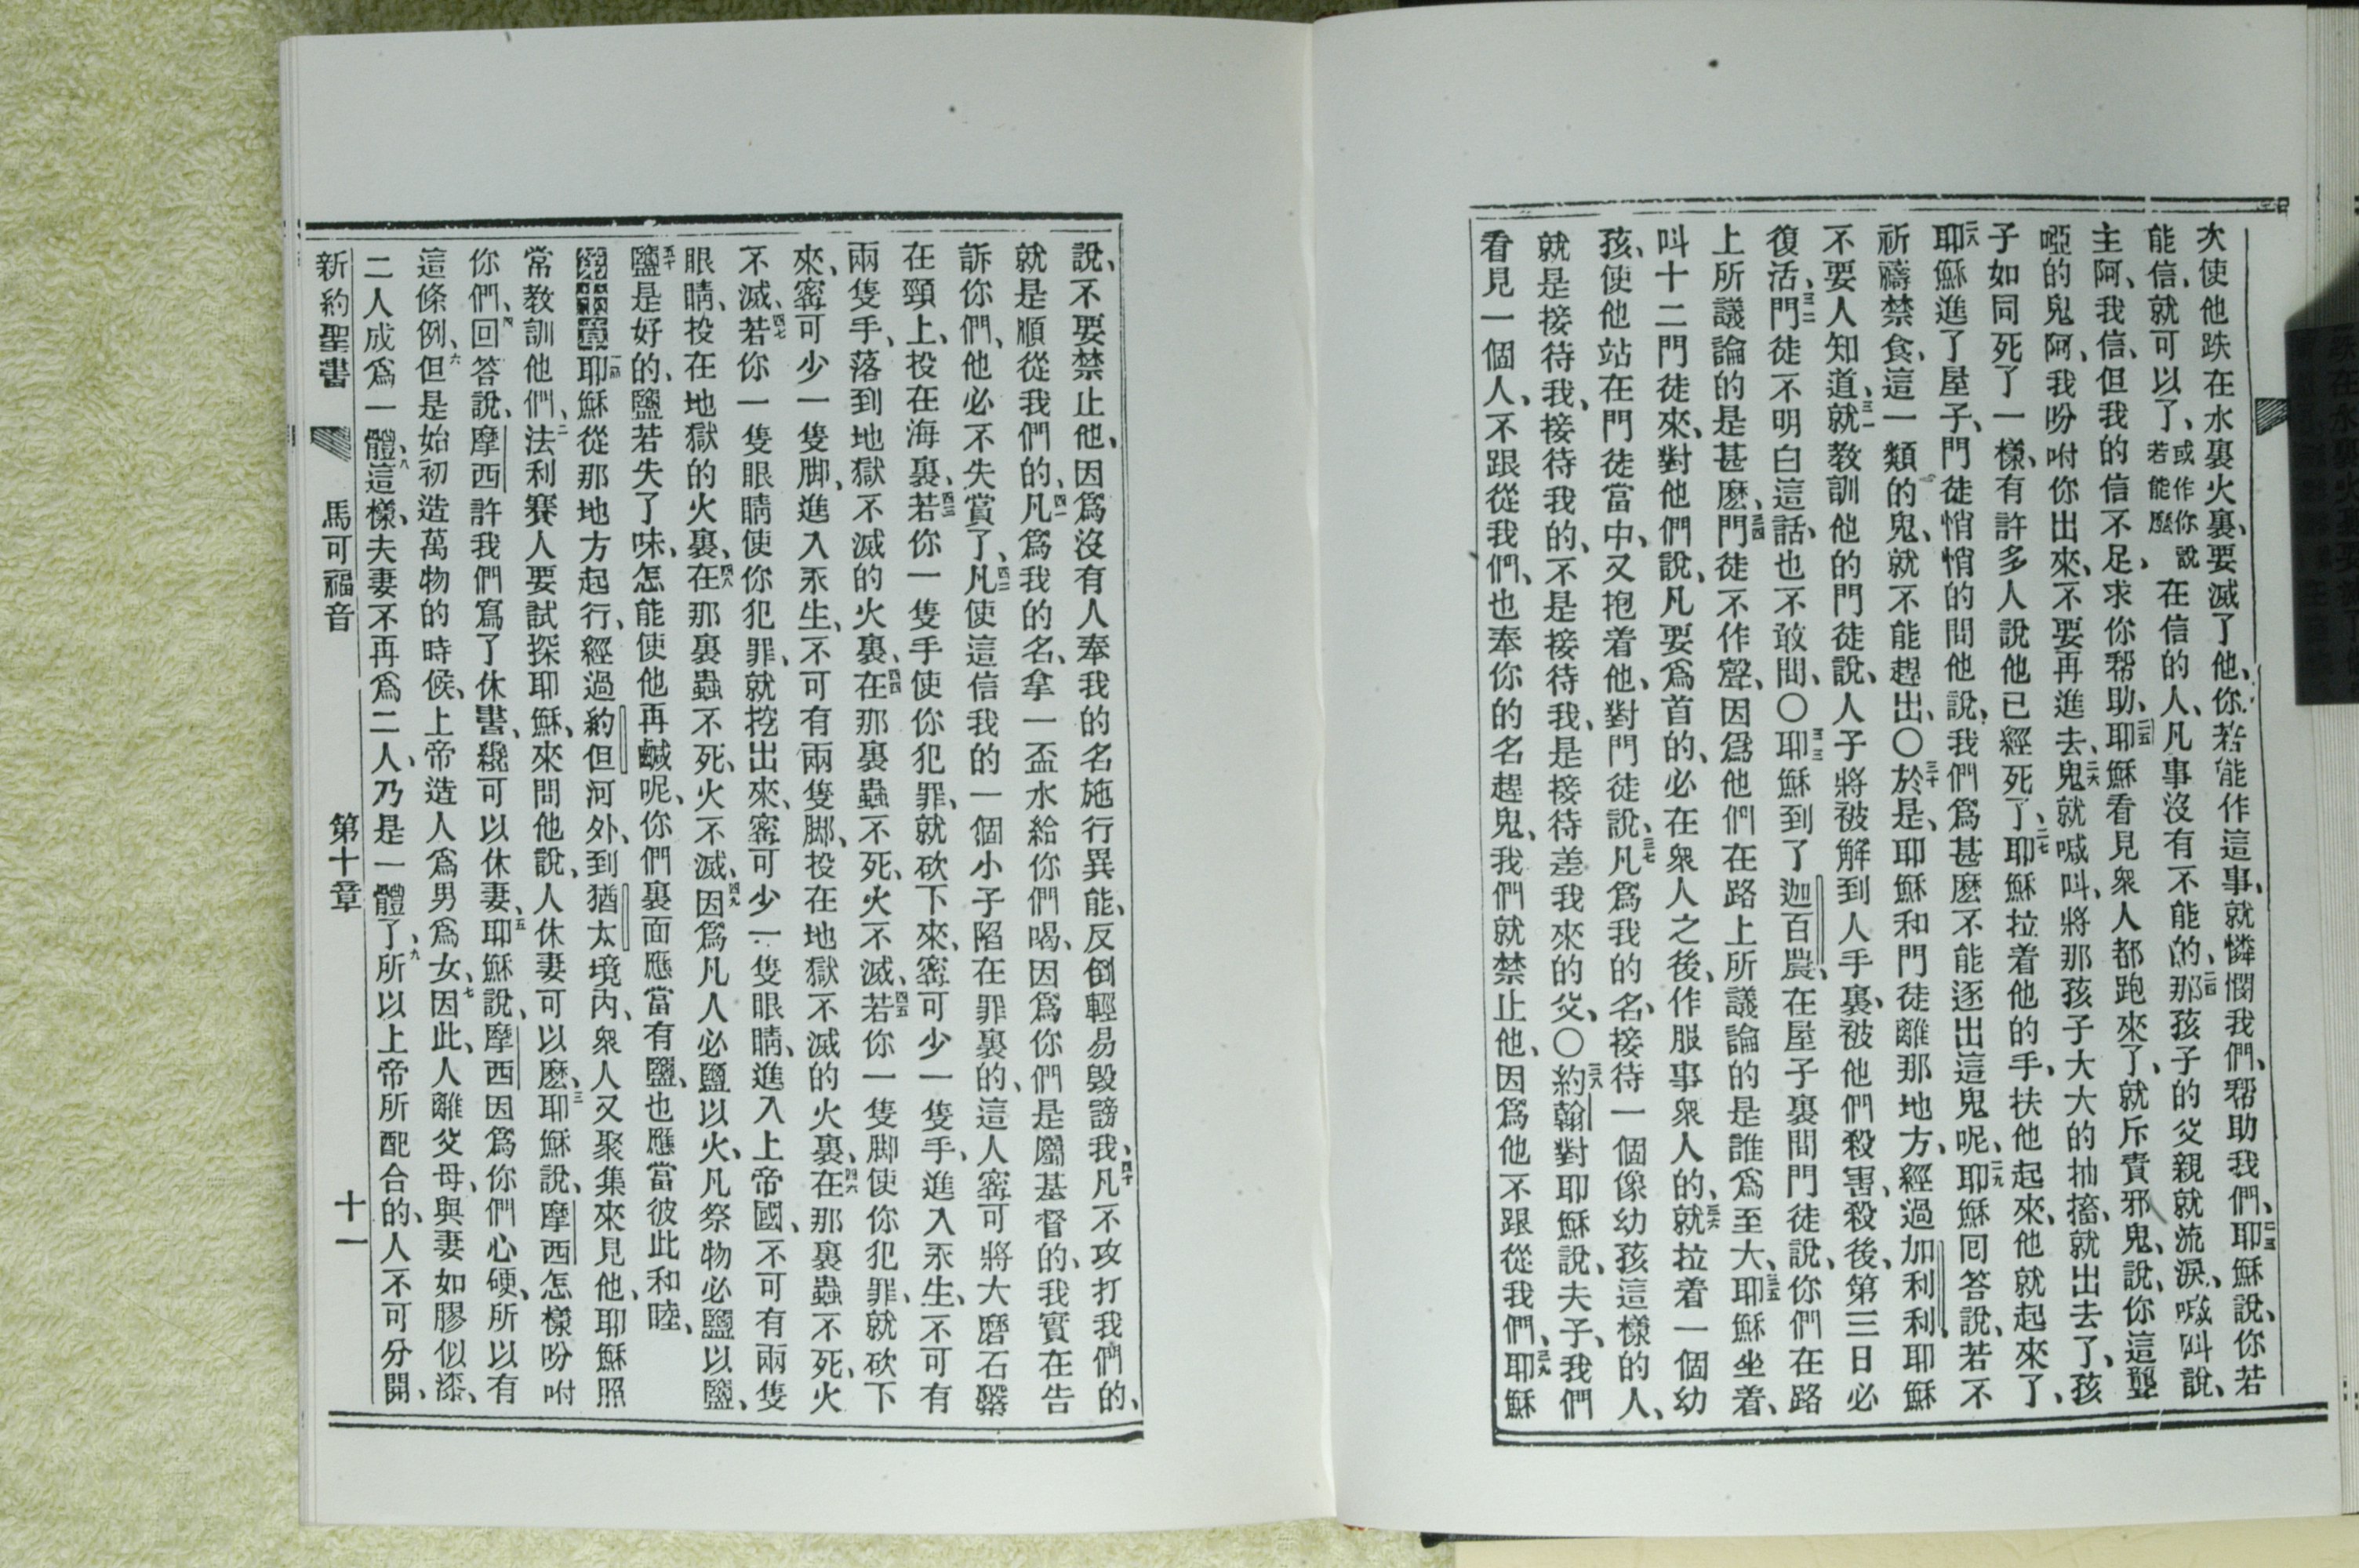 次使他跌在水裏火裏、要滅了他、你若能作這事、就憐憫我們、帮助我們、二三耶穌說、你若
能信、就可以了、或作你說若能麽在信的人、凡事沒有不能的、二四那孩子的父親就流淚、喊叫說、
主阿、我信、但我的信不足、求你帮助、二五耶穌看見衆人都跑來了、就斥責邪鬼、說、你這聾
啞的鬼阿、我吩咐你出來、不要再進去、二六鬼就喊叫、將那孩子大大的抽搐、就出去了、孩
子如同死了一樣、有許多人說他已經死了、二七耶穌拉着他的手、扶他起來、他就起來了、
二八耶穌進了屋子、門徒悄悄的問他說、我們爲甚麽不能逐出這鬼呢、二九耶穌囘答說、若不
祈禱禁食、這一類的鬼、就不能趕出、〇三十於是、耶穌和門徒離那地方、經過加利利、耶穌
不要人知道、三一就教訓他的門徒、說、人子將被解到人手裏、被他們殺害、殺後、第三日必
復活、三二門徒不明白這話、也不敢問、〇三三耶穌到了迦百農、在屋子裏問門徒、說、你們在路
上所議論的是甚麽、三四門徒不作聲、因爲他們在路上所議論的是誰爲至大、三五耶穌坐着、
叫十二門徒來、對他們說、凡要爲首的、必在衆人之後、作服事衆人的、三六就拉着一個幼
孩、使他站在門徒當中、又抱着他、對門徒說、三七凡爲我的名、接待一個像幼孩這樣的人、
就是接待我、接待我的、不是接待我、是接待差我來的父、〇三八約翰對耶穌說、夫子、我們
看見一個人、不跟從我們、也奉你的名趕鬼、我們就禁止他、因爲他不跟從我們、三九耶穌
說、不要禁止他、因爲沒有人奉我的名施行異能、反倒輕易毀謗我、四十凡不攻打我們的、
就是順從我們的、四一凡爲我的名、拿一盃水給你們喝、因爲你們是屬基督的、我實在告
訴你們、他必不失賞了、四二凡使這信我的一個小子陷在罪裏的、這人寗可將大磨石𦈢
在頸上、投在海裏、四三若你一隻手使你犯罪、就砍下來、寗可少一隻手、進入永生、不可有
兩隻手、落到地獄不滅的火裏、四四在那裏蟲不死、火不滅、四五若你一隻脚使你犯罪、就砍下
來、寗可少一隻脚、進入永生、不可有兩隻脚、投在地獄不滅的火裏、四六在那裏蟲不死、火
不滅、四七若你一隻眼睛使你犯罪、就挖出來、寗可少一隻眼睛、進入上帝國、不可有兩隻
眼睛、投在地獄的火裏、四八在那裏蟲不死、火不滅、四九因爲凡人必鹽以火、凡祭物必鹽以鹽、
五十鹽是好的、鹽若失了味、怎能使他再鹹呢、你們裏面應當有鹽、也應當彼此和睦、
第十章一節耶穌從那地方起行、經過約但河外、到猶太境內、衆人又聚集來見他、耶穌照
常教訓他們、二法利賽人要試探耶穌、來問他說、人休妻可以麽、三耶穌說、摩西怎樣吩咐
你們、四回答說、摩西許我們寫了休書、纔可以休妻、五耶穌說、摩西因爲你們心硬、所以有
這條例、六但是始初造萬物的時候、上帝造人爲男爲女、七因此、人離父母、與妻如膠似漆、
二人成爲一體、八這樣、夫妻不再爲二人、乃是一體了、九所以上帝所配合的、人不可分開、
新約聖書 馬可福音 第十章 十一